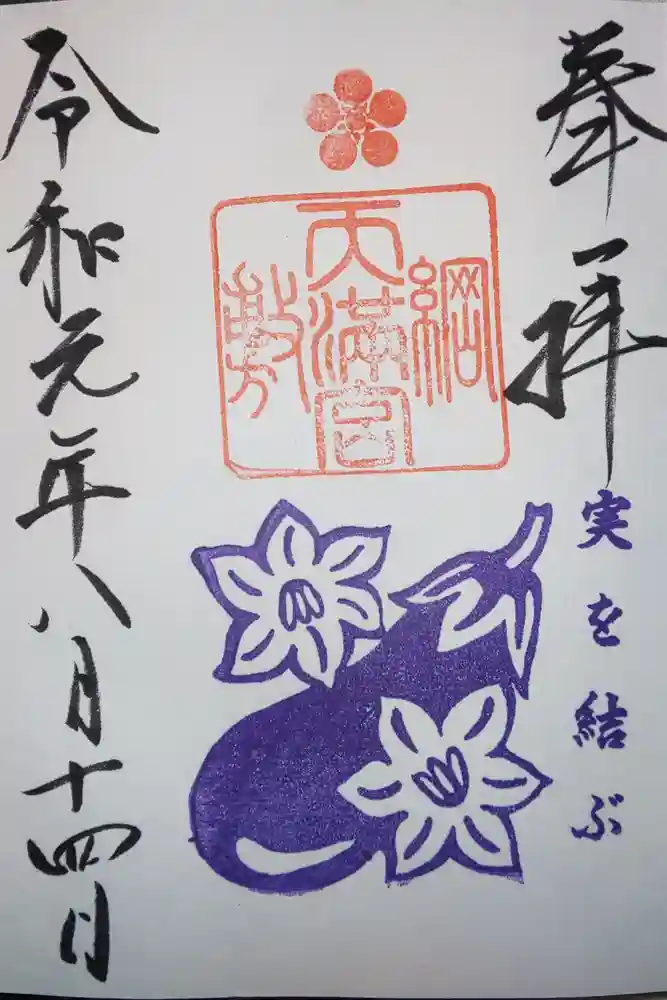 奉拝
実を結ぶ
綱
天満宮
敷
令和元年八月十四日